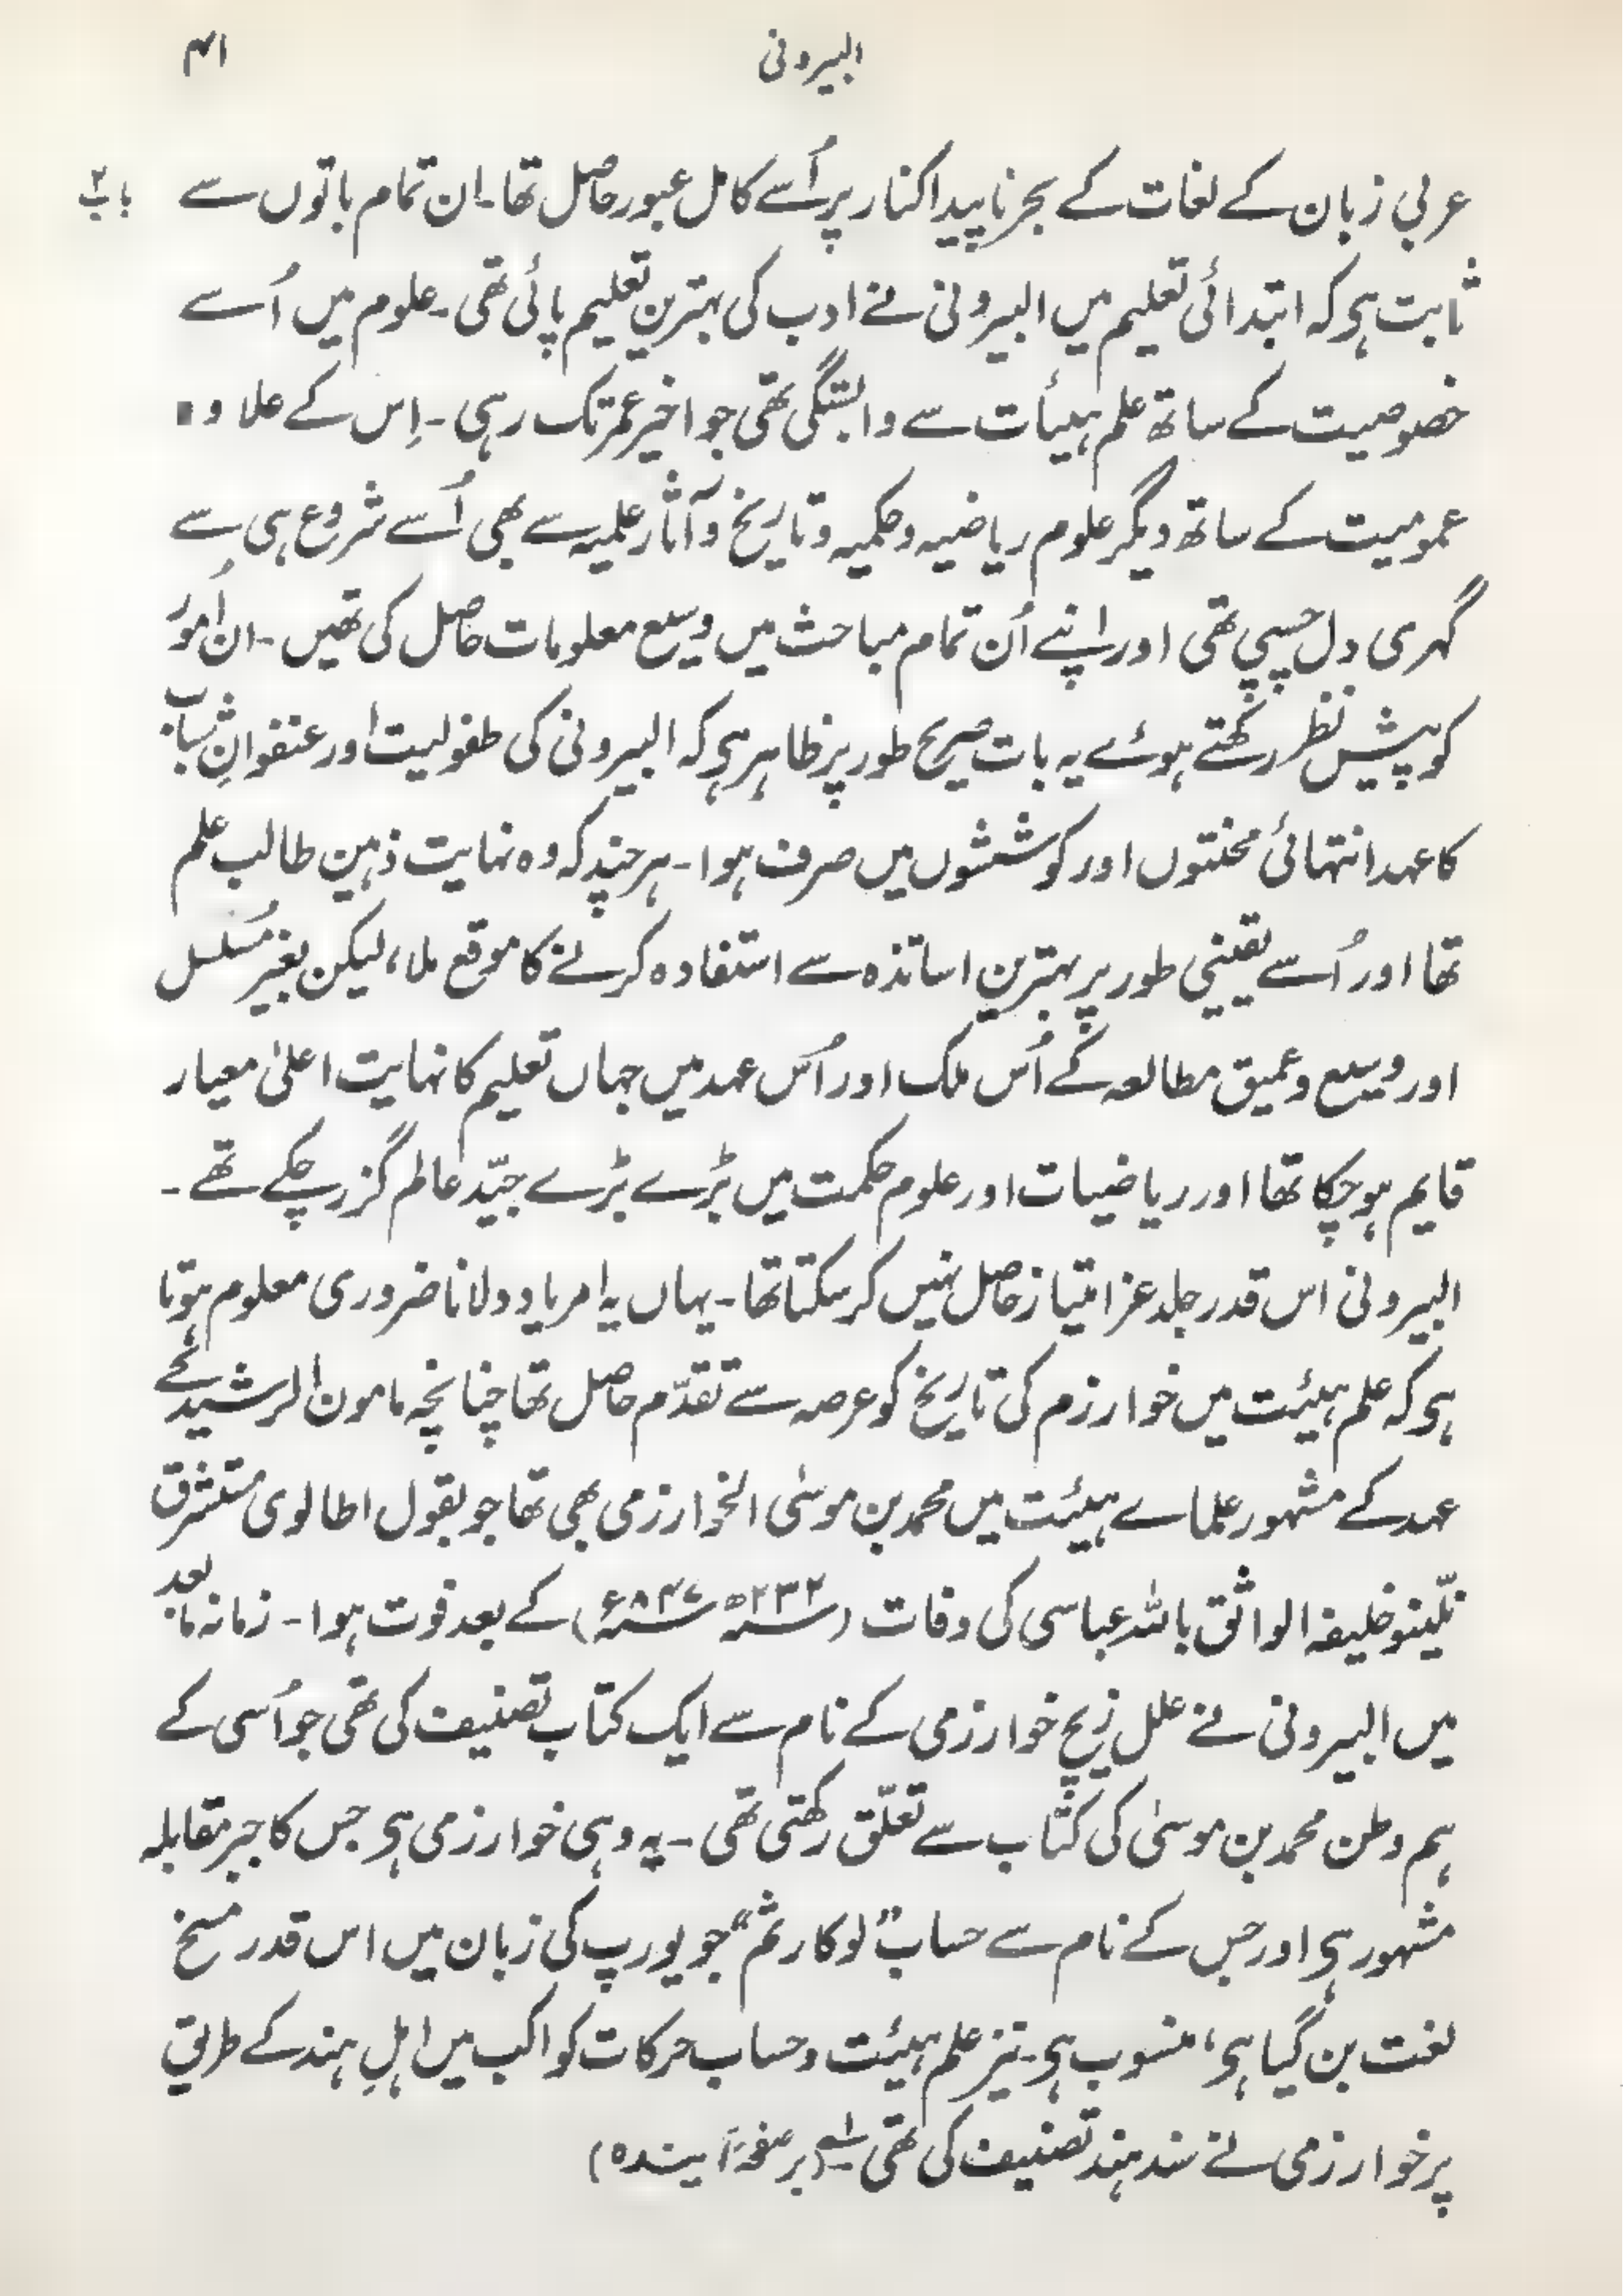 البیرونی ۴۱
باب۲
عربی زبان کے لغات کے بحر ناپیدا کنار پر اُسے کامل عبور حاصل تھا۔ ان تمام باتوں سے
ثابت ہو کہ ابتدائی تعلیم میں البیرونی نے ادب کی بہترین تعلیم پائی تھی۔ علوم میں اُسے
خصوصیت کے ساتھ علم ہیئات سے وابستگی تھی جو اخیر عمر تک رہی۔ اِس کے علاوہ
عمومیت کے ساتھ دیگر علوم ریاضیہ و حکمیہ و تاریخ و آثار علمیہ سے بھی اُسے شروع ہی سے
گہری دل چسپی تھی اور اپنے اُن تمام مباحث میں وسیع معلومات حاصل کی تھیں۔ ان اُمور
کو پیش نظر رکھتے ہوئے یہ بات صریح طور پر ظاہر ہو کہ البیرونی کی طفولیت اور عنفوانِ شباب
کا عہد انتہائی محنتوں اور کوششوں میں صرف ہوا۔ ہر چند کہ وہ نہایت ذہین طالب علم
تھا اور اُسے یقینی طور پر بہترین اساتذہ سے استفادہ کرنے کا موقع ملا، لیکن بغیر مُسلسل
اور وسیع و عمیق مطالعہ کے اُس ملک اور اُس عہد میں جہاں تعلیم کا نہایت اعلیٰ معیار
قایم ہو چکا تھا اور ریاضیات اور علوم حکمت میں بڑے بڑے جیّد عالم گزر چکے تھے۔
البیرونی اس قدر جلد عز امتیاز حاصل نہیں کر سکتا تھا۔ یہاں یہ امر یاد دلانا ضروری معلوم ہوتا
ہو کہ علم ہیئت میں خوارزم کی تاریخ کو عرصہ سے تقدّم حاصل تھا چنانچہ مامون الرشید کے
عہد کے مشہور علماے ہیئت میں محمد بن موسیٰ الخوارزمی بھی تھا جو بقول اطالوی مستشرق
نلّینو خلیفہ الواثق باللہ عباسی کی وفات (سنہ ۲۳۲ھ سنہ ۸۴۷ء) کے بعد فوت ہوا۔ زمانہ مابعد
میں البیرونی نے علل زیج خوارزمی کے نام سے ایک کتاب تصنیف کی تھی جو اُسی کے
ہم وطن محمد بن موسیٰ کی کتاب سے تعلّق رکھتی تھی۔ یہ وہی خوارزمی ہو جس کا جبر مقابلہ
مشہور ہو اور جس کے نام سے حساب ”لوکارثم“ جو یورپ کی زبان میں اس قدر مسخ
لغت بن گیا ہو، منسوب ہو۔ نیز علم ہیئت و حساب حرکات کواکب میں اہلِ ہند کے طریق
پر خوارزمی نے سند ہند تصنیف کی تھی۔ ۱؎ (برصفحۂ آیندہ)